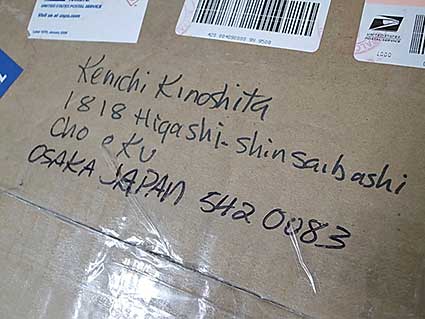 UNITED STATES POSTAL SERVICE
Visit us at usps.com
Label 107R, January 2008
UNITED STATES
POSTAL SERVICE
1000
Kenichi Kinoshita
1818 Higashi-Shinsaibashi
Cho o Ku
OSAKA JAPAN 542 0083